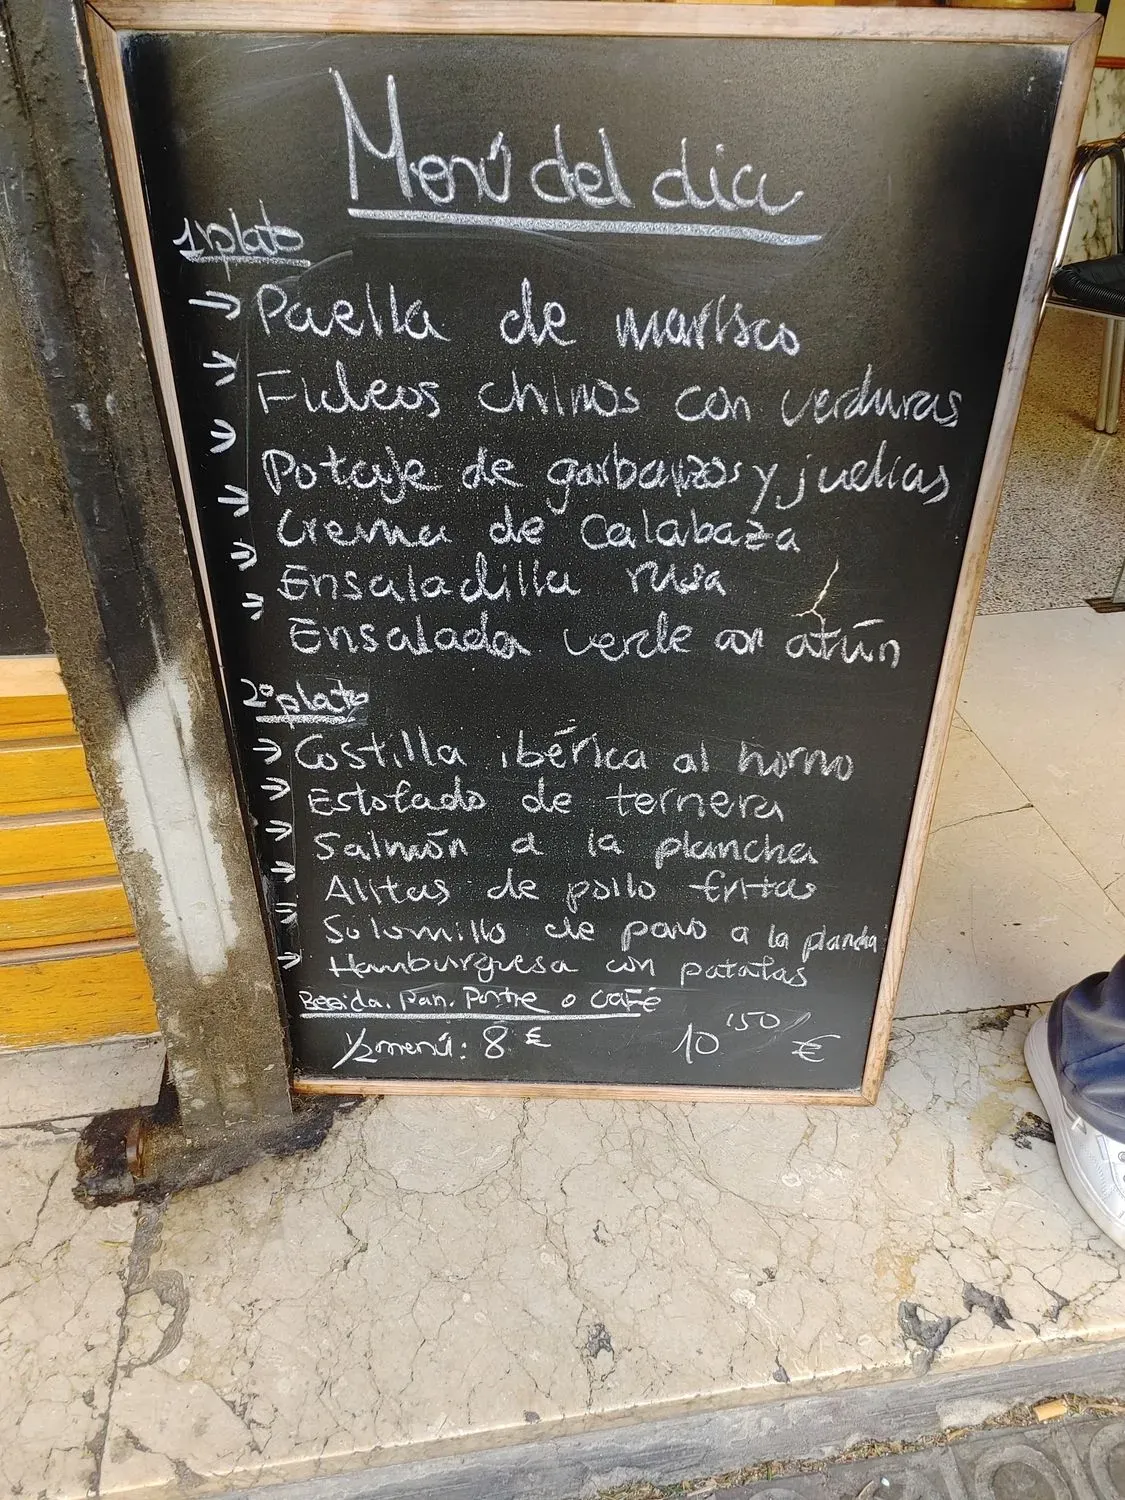 Menú del dia
1º plato
→ Paella de marisco
→ Fideos chinos con verduras
→ Potaje de garbanzos y judias
→ Crema de Calabaza
→ Ensaladilla rusa
→ Ensalada verde con atún
2º plato
→ Costilla ibérica al horno
→ Estofado de ternera
→ Salmón a la plancha
→ Alitas de pollo fritas
→ Solomillo de pavo a la plancha
→ Hamburguesa con patatas
Bebida. Pan. Postre o café
1/2 menú: 8 € 10'50 €